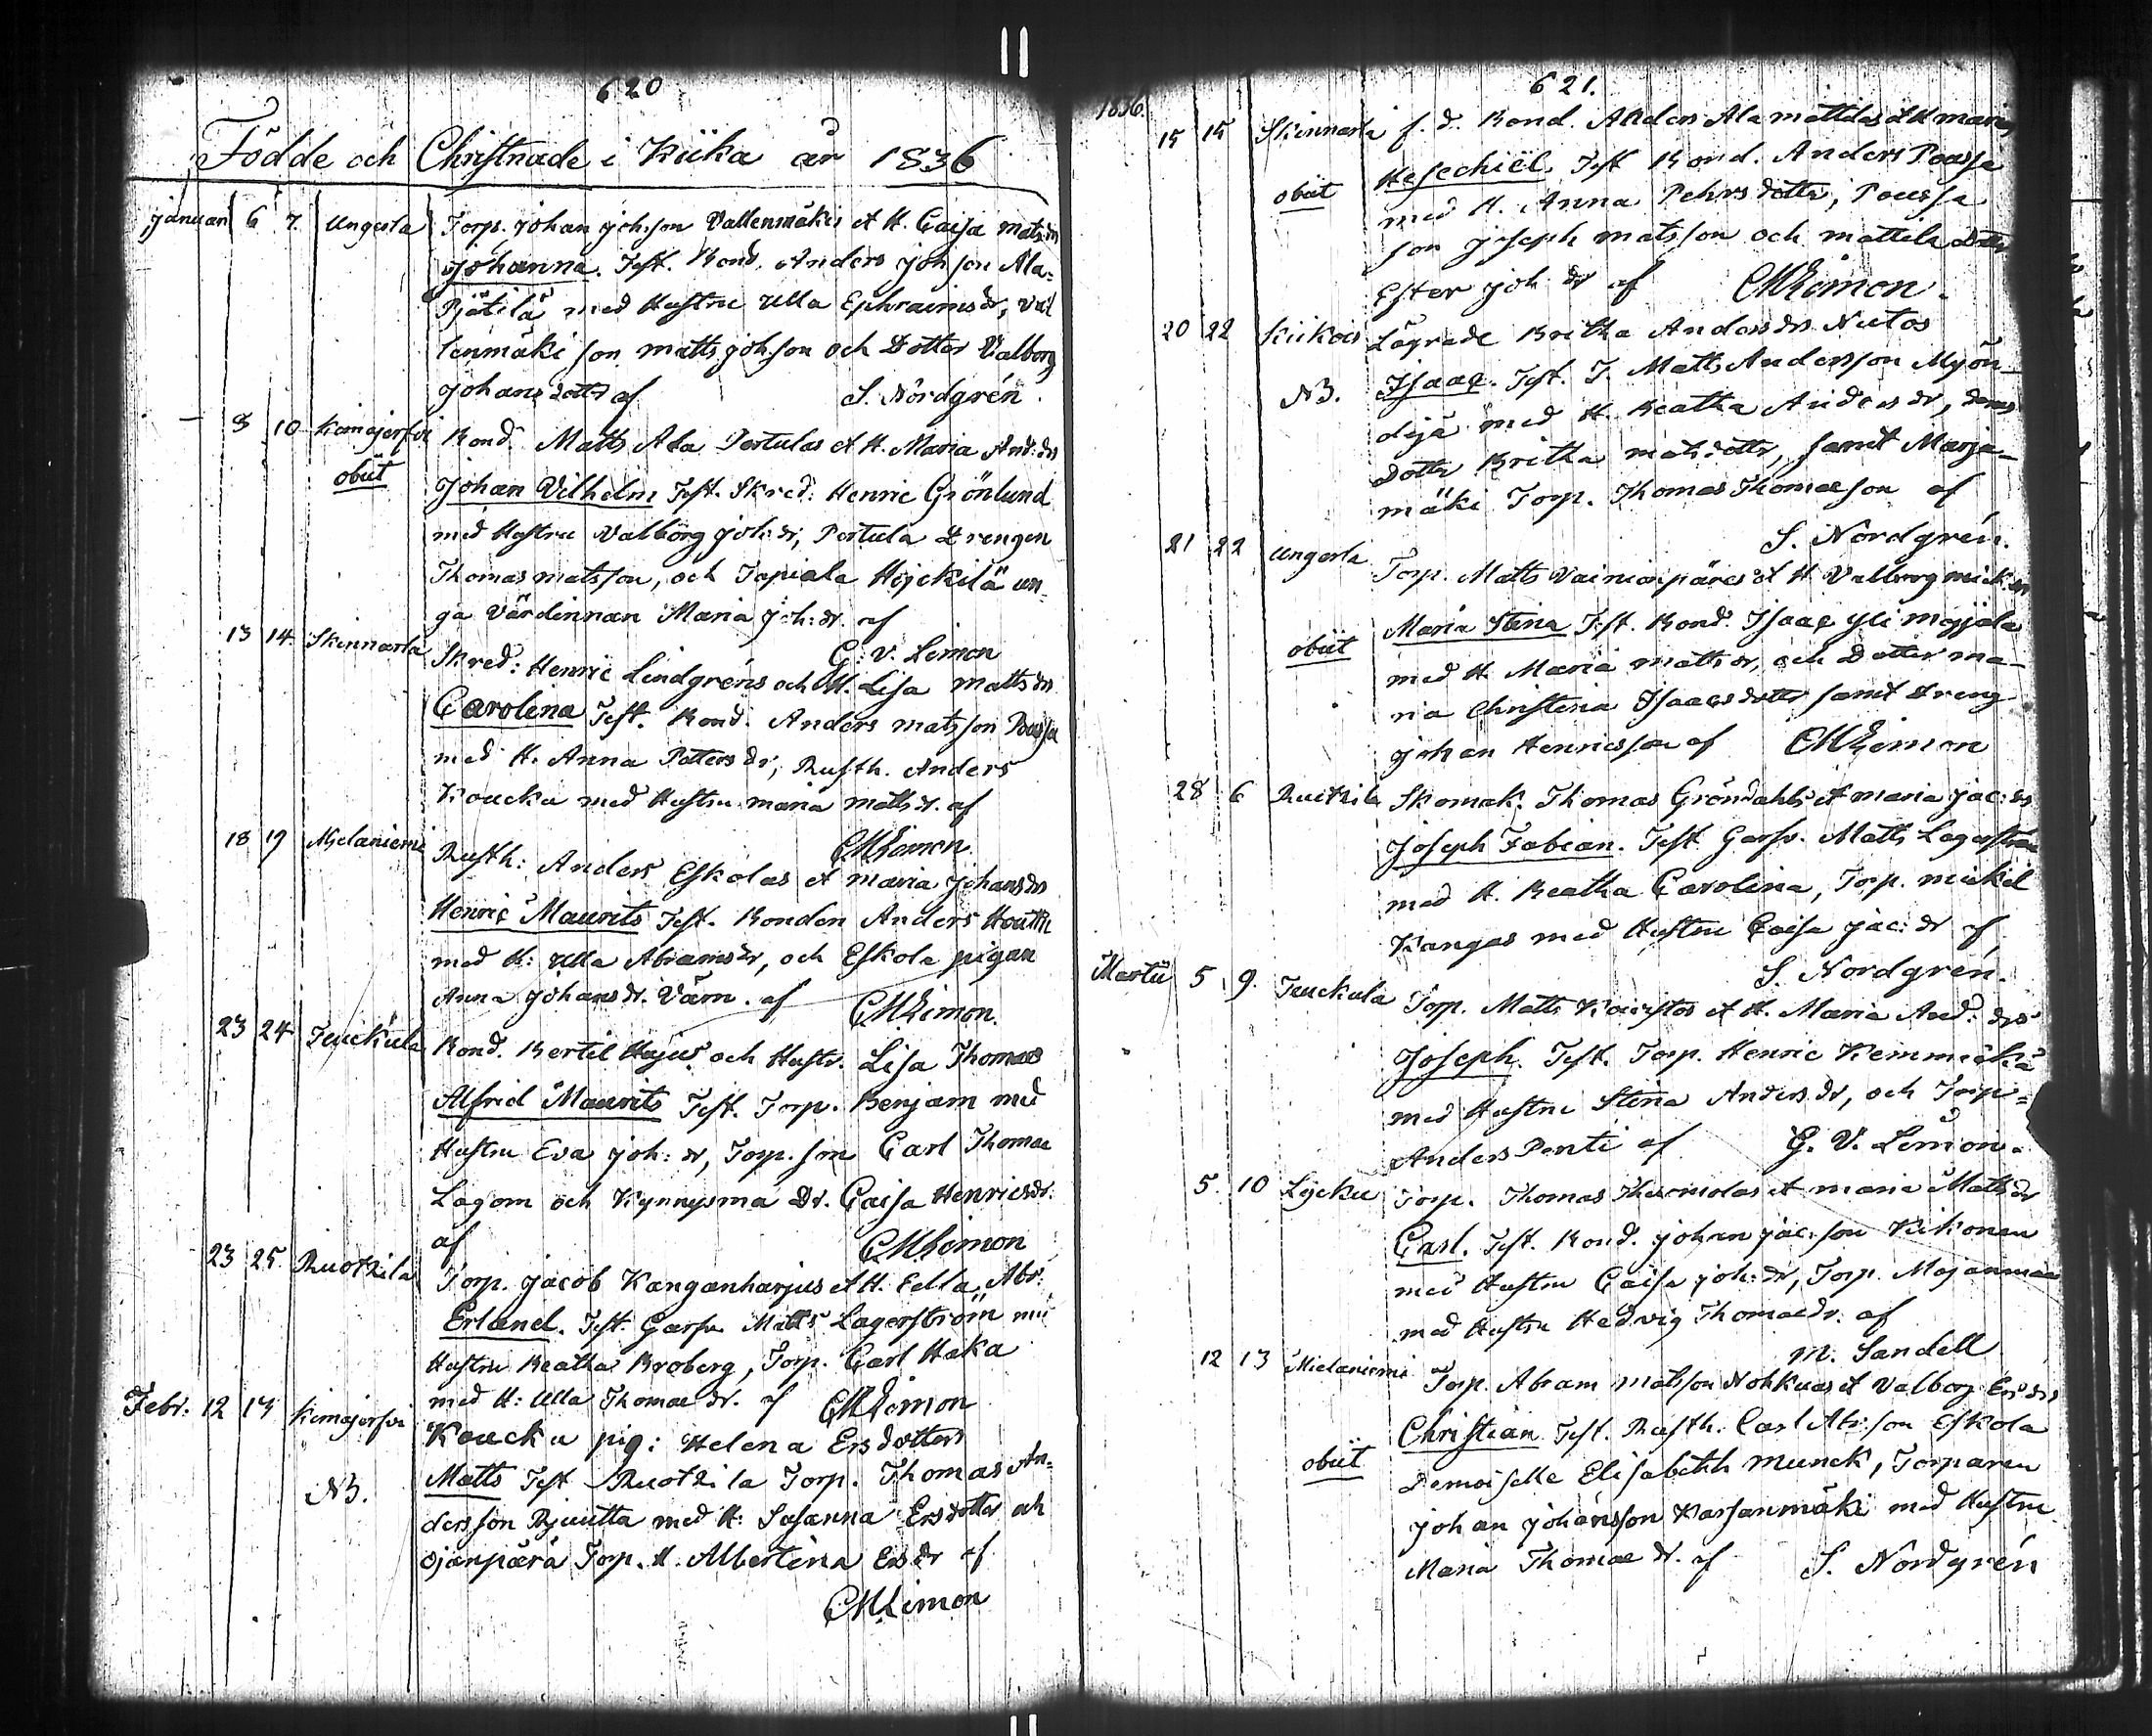 620
Födde och Christnade i Kiika år 1836
Januari 6 7. Ungerla Torp. Johan Johsson Vallenmäkis et H. Caisa Matsdr
Johanna. Test. Bond. Anders Johsson Ala=
Pjätilä med Hustru Ulla Ephraimsdr, Val
lenmäki son Matts Johsson och Dotter Valborg
Johansdotter af S. Nordgrén.
— 8 10 Kimajerfvi Bond. Matts Ala Pertulas et H. Maria And:drs
obiit Johan Vilhelm Test. Skred: Henric Grönlund
med Hustru Valborg Joh:dr, Pertula Drengen
Thomas Matsson, och Tapiala Hejckilä un-
ga Värdinnan Maria Joh:dr. af
G. V. Limon
13 14 Skinnarla Skred: Henric Lindgréns och H. Lisa Mattsdrs
Carolina Test. Bond. Anders Matsson Poussa
med H. Anna Pettersdr, Rusth. Anders
Koucku med Hustru Maria Mattsdr. af
CMLimon
18 19 Mielaniemi Rusth: Anders Eskolas et Maria Johansdrs
Henric Maurits Test. Bonden Anders Houtti
med H: Ulla Abramsdr, och Eskola pigan
Anna Johansdr. Värn. af CMLimon.
23 24 Jeuckula Bond. Bertil Hejus och Hustr. Lisa Thomas
Alfrid Maurits Test. Torp. Benjam med
Hustru Eva Joh:dr, Torp. son Carl Thomae
Lagom och Kynnysmaa Dr. Caisa Henricsdr.
af CMLimon
23 25. Ruotzila Torp. Jacob Kanganharjus et H. Eella Abr:
Erland. Test. Garfv. Matts Lagerström med
Hustru Beatha Broberg, Torp. Carl Haka
med H: Ulla Thomaedr. af CMLimon
Febr. 12 14 Kimajerfvi Koucku pig: Helena Ersdotters
NB. Matts Test Ruotzila Torp. Thomas An=
dersson Pjuutta med H: Susanna Ersdotter och
Ojanpärä Torp. H. Albertina Ersdr af
CMLimon
621.
1836.
15 15 Skinnarla f. d. Bond. Anders Ala Mattilas et H Maria
obiit Hesechiël. Test Bond. Anders Poussa
med H. Anna Pehrsdotter, Poussa
son Joseph Matsson och Mattila dotter
Ester Joh dr af CMLimon.
20 22 Kiikois Lägrade Britha Andersdrs Nietos
NB. Isaac. Test. T. Matts Andersson Myön-
dijä med H. Beatha Andersdr, deras
dotter Britha Matsdotter, samt Marja-
mäki Torp. Thomas Thomaeson af
S. Nordgrén.
21 22 Ungerla Torp. Matts Vainionpääs et H Valborg Mick:drs
obiit Maria Stina Test. Bond. Isaac Yli Mojjala
med H Maria Mattsdr, och Dotter Ma-
ria Christina Isaacsdotter samt Dreng
Johan Henricsson af CMLimon
28 6 Ruotzila Skomak. Thomas Gröndahls et Maria Jac:drs
Joseph Fabian. Test Garfv. Matts Lagerström
med H. Beatha Carolina, Torp. Mickel
Kangas med Hustru Caisa Jac:dr af
S. Nordgrén.
Martii 5 9. Jeuckula Torp. Matts Kouistos et H. Maria And:drs
Joseph. Test. Torp. Henric Kemmäkä
med Hustru Stina Anders.dr, och Torp=
Anders Penti af G. V. Limon.
5. 10 Lijcku Torp. Thomas Thuomolas et Maria Mattsdr
Carl. Test. Bond. Johan Jac:son Kikonen
med Hustru Caisa Joh:dr, Torp. Majanmaa
med Hustru Hedvig Thomaedr. af
M. Sandell
12 13 Mielaniemi Torp. Abram Matsson Nohkuas et Valborg Ersdrs
obiit Christian Test. Rusth. Carl Abr:son Eskola
Demoiselle Elisabeth Munck, Torparen
Johan Johansson Karsanmäki med Hustru
Maria Thomaedr. af S. Nordgrén